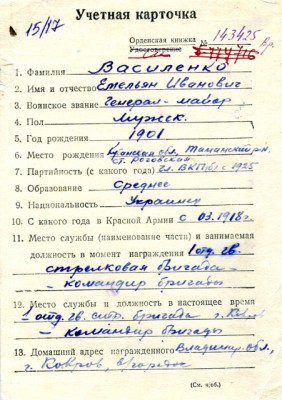 15/17
Учетная карточка
Орденская книжка № 143425
Удостоверение
1. Фамилия Василенко
2. Имя и отчество Емельян Иванович
3. Воинское звание Генерал-майор
4. Пол Мужск.
5. Год рождения 1901
6. Место рождения обл. Таманский р-н,
ст. Роговская
7. Партийность (с какого года) Чл. ВКП(б) с 1925
8. Образование Среднее
9. Национальность Украинец
10. С какого года в Красной Армии с 03.1918г.
11. Место службы (наименование части) и занимаемая
должность в момент награждения 1 отд. гв.
стрелковая бригада –
– командир бригады
12. Место службы и должность в настоящее время
1 отд. гв. стр. бригада г. Ковров
– командир бригады
13. Домашний адрес награжденного Владимир. обл.,
г. Ковров, военгородок
(См. н/об.)